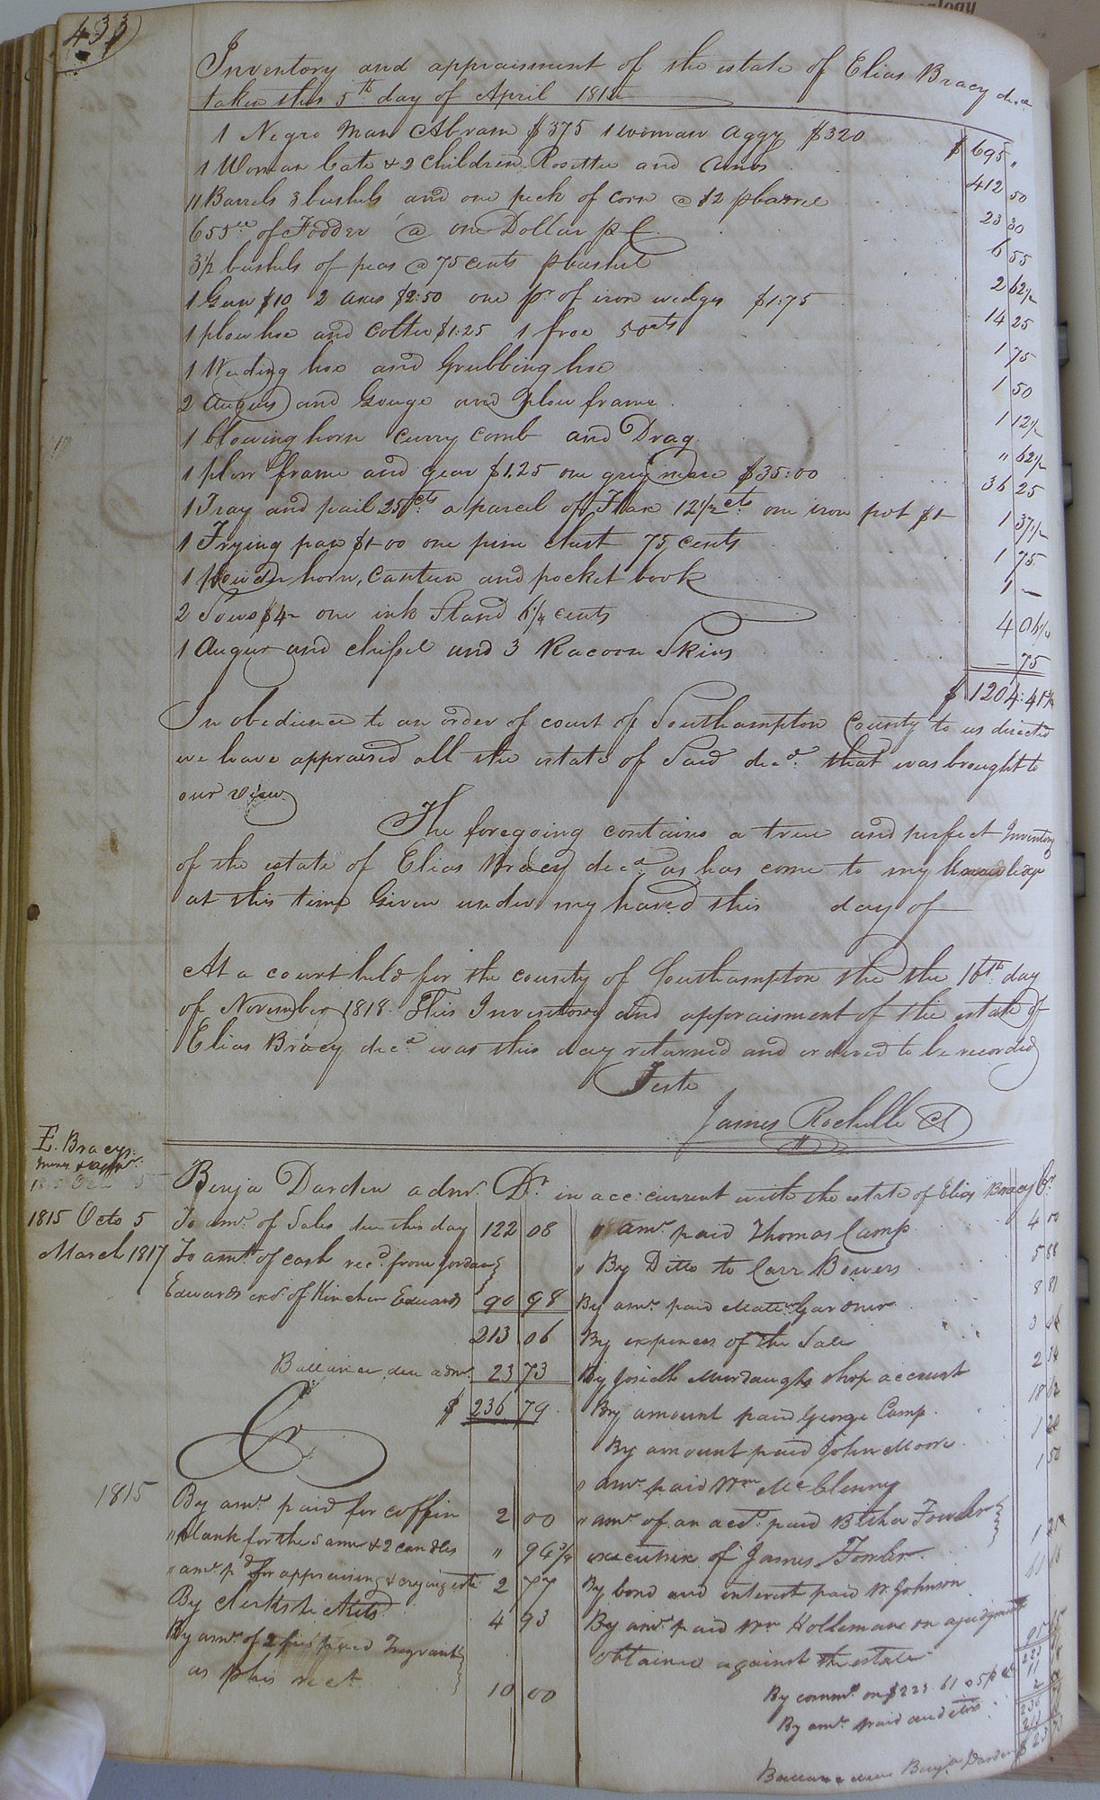 433
Inventory and appraisment of the estate of Elias Bracy decd
taken this 5th day of April
1 Negro Man Abram $375 1 woman Aggy $320 $695 "
1 Woman Cate & 2 Children Rosetta and 412 50
11 Barrels 3 bushels and one peck of corn @ $2 p barrel 23 30
655 of Fodder @ one Dollar p C 6 55
3 1/2 bushels of peas @ 75 cents p bushel 2 62 1/2
1 Gun $10 2 axes $2:50 one pr of iron wedges $1:75 14 25
1 plow hoe and Colter $1:25 1 froe 50 cts 1 75
1 Weeding hoe and Grubbing hoe 1 50
2 Augurs and Gouge and plow frame 1 12 1/2
1 blowing horn curry comb and Drag " 62 1/2
1 plow frame and gear $1.25 one grey mare $35:00 36 25
1 Tray and pail 25 cts a parcel of Flax 12 1/2 cts one iron pot $1 1 37 1/2
1 Frying pan $1 00 one pine chest 75 cents 1 75
1 powder horn, Canteen and pocket book 1 —
2 Sows $4 — one ink Stand 6 1/4 cents 4 06 1/4
1 Augur and chissel and 3 Racoon Skins — 75
$ 1204:41
In obedience to an order of court of Southampton County to us directed
we have appraised all the estate of Said decd. that was brought to
our view
The foregoing contains a true and perfect Inventory
of the estate of Elias Bracy decd. as has come to my knowledge
at this time Given under my hand this day of
At a court held for the county of Southampton the the 16th day
of November 1818 This Inventory and appraisment of the estate of
Elias Bracy decd was this day returned and ordered to be recorded
Teste
James Rochelle C
E. Bracys
Benja Darden admr. Dr. in acc: current with the estate of Elias Bracy Cr
1815 Octo 5 To amt. of Sales due this day 122 08
March 1817 To amt of cash recd. from Jordan
Edwards exr of Kinchen Edwards 90 98
213 06
Ballance due admr 23 73
$ 236 79
Cr
1815 By amt. paid for coffin 2 00
" plank for the same & 2 candles " 94 3/4
" amt pd for appraising & crying 2 77
By clerks tickets 4 93
By amt. of 2 paid
as p his rect. 10 00
" amt. paid Thomas Camp 4 00
" By Ditto to Carr Bowers 5 88
By amt. paid Matt. Gardner 8 81
By expences of the Sale
By Josiah Murdaughs shop account 2 34
By amount paid George Camp 18
By amount paid John Moore 1
" amt. paid Wm McClenny 1 50
" amt. of an acct. paid Fowler
executrix of James Fowler
By bond and interest paid Johnson
By amt. paid Wm Holleman on a judgment
obtained against the estate
By commn on $223.61 @ 5 p ct
By amt. paid auditors
Ballance due Benja Darden $ 23 73